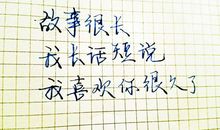 故事很长
我长话短说
我喜欢你很久了